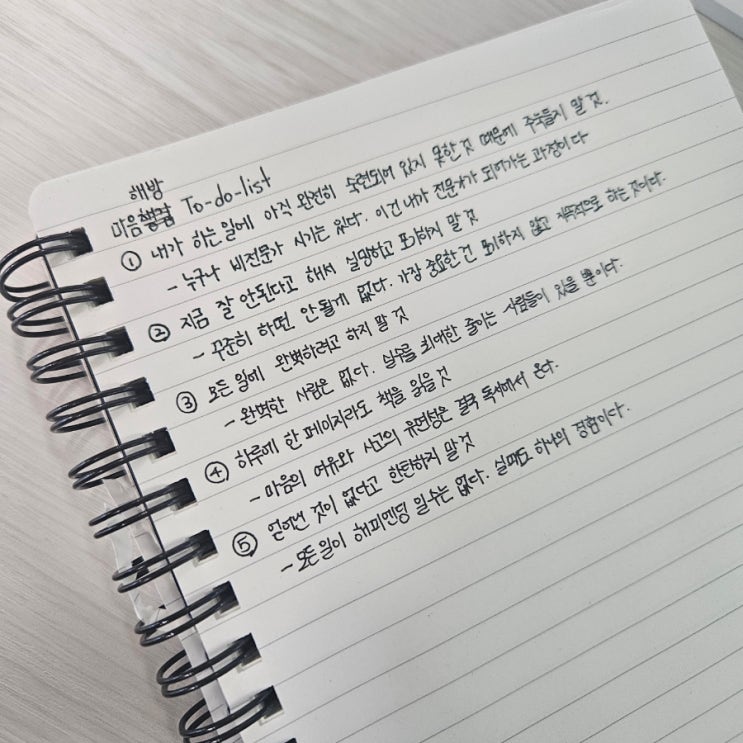 해방
마음 To-do-list
① 내가 하는 일에 아직 완전히 숙련되어 있지 못한 것 때문에 주눅들지 말 것.
- 누구나 비전문가 시기는 있다. 이건 내가 전문가가 되어가는 과정이다
② 지금 잘 안된다고 해서 실망하고 포기하지 말 것
- 꾸준히 하면 안될게 없다. 가장 중요한 건 포기하지 않고 지속적으로 하는 것이다.
③ 모든 일에 완벽하려고 하지 말 것
- 완벽한 사람은 없다. 실수를 최대한 줄이는 사람들이 있을 뿐이다.
④ 하루에 한 페이지라도 책을 읽을 것
- 마음의 여유와 사고의 유연성은 결국 독서에서 온다.
⑤ 얻어낸 것이 없다고 한탄하지 말 것
- 모든 일이 해피엔딩 일수는 없다. 실패도 하나의 경험이다.